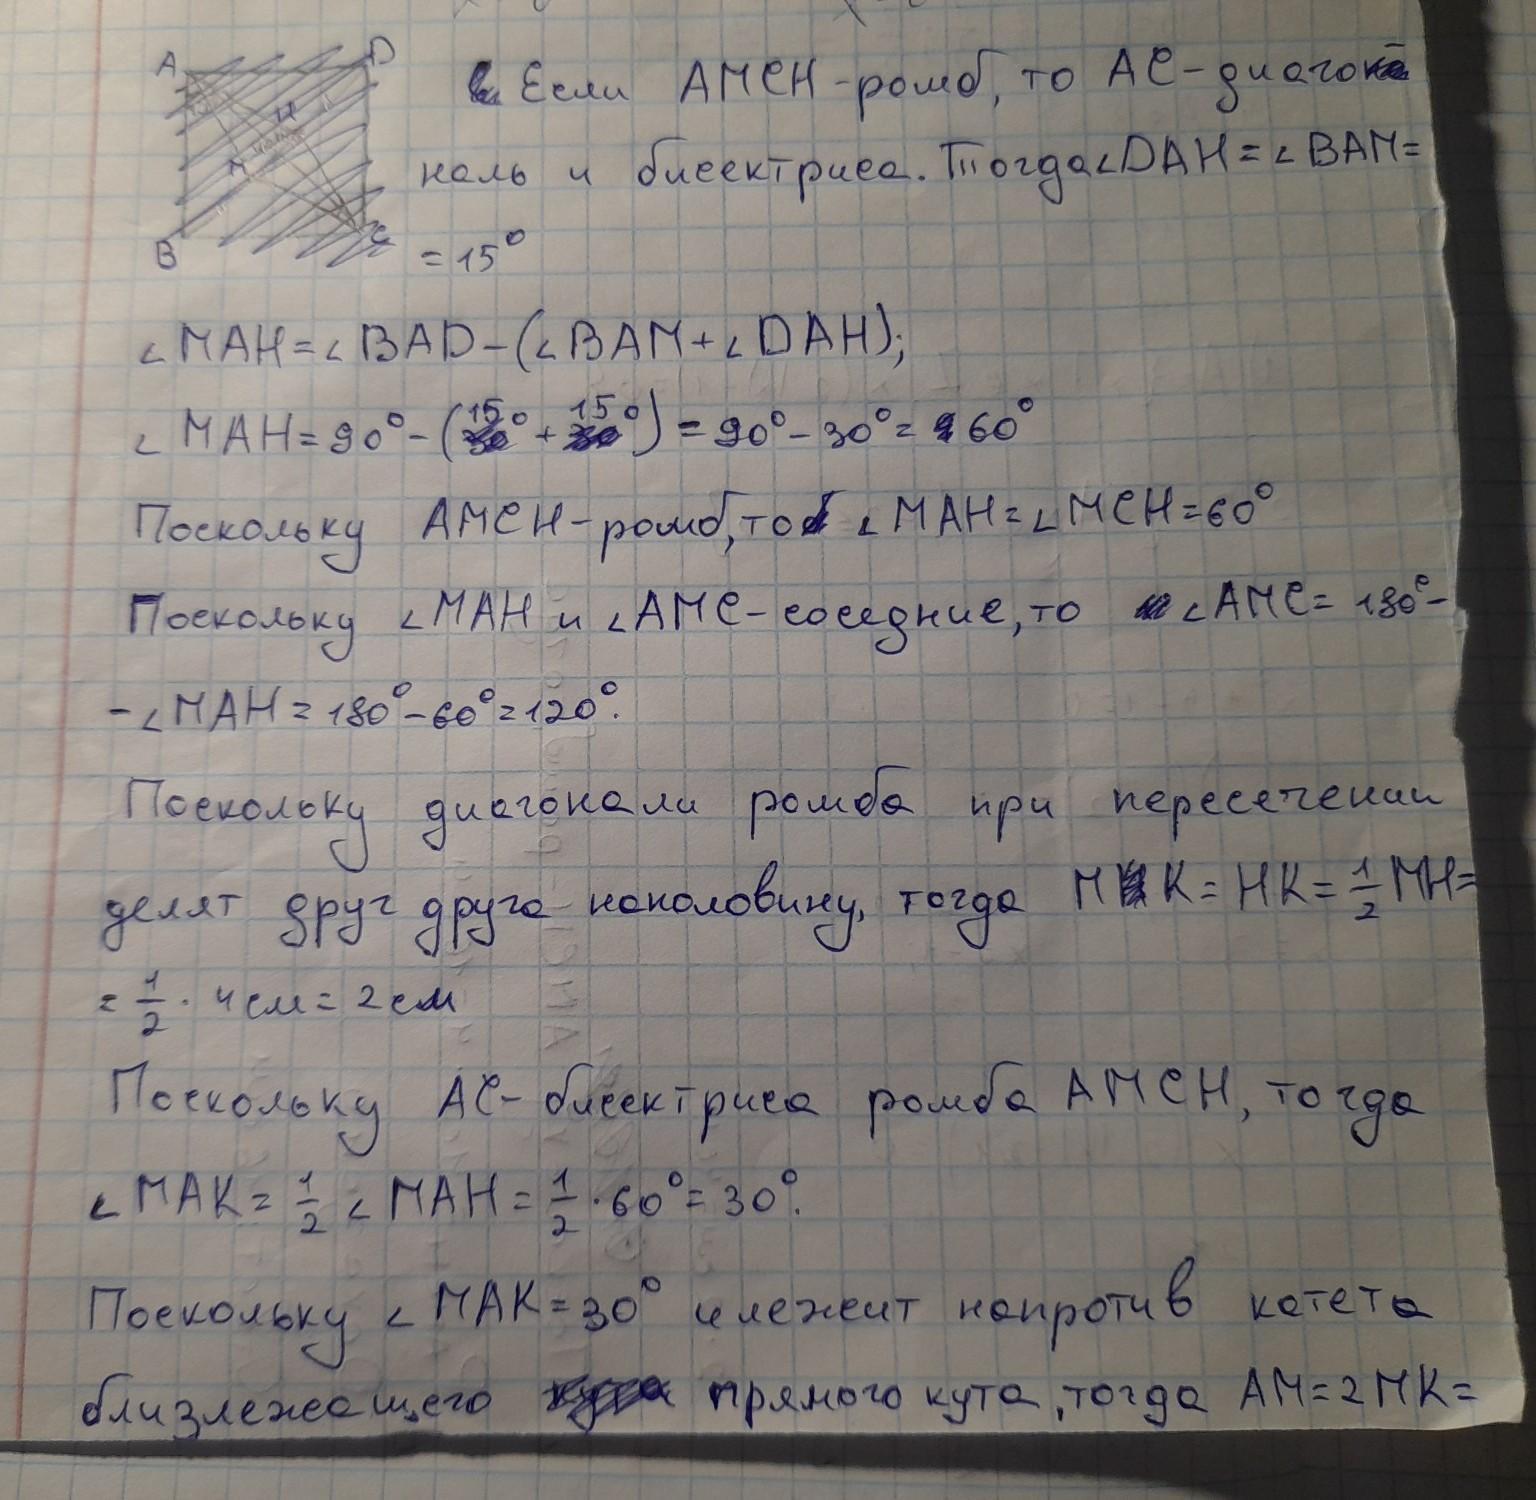 A D
Н
М
B C
Если АМСН-ромб, то АС-диаго
наль и бисектриса. Тогда ∠DAH = ∠BAM =
= 15°
∠MAH = ∠BAD - (∠BAM + ∠DAH);
∠MAH = 90° - (15° + 15°) = 90° - 30° = 60°
Поскольку АМСН-ромб, то ∠MAH = ∠MCH = 60°
Поскольку ∠MAH и ∠AMC-соседние, то ∠AMC = 180° -
- ∠MAH = 180° - 60° = 120°.
Поскольку диагонали ромба при пересечении
делят друг друга наполовину, тогда MK = HK = 1/2 MH =
= 1/2 · 4 см = 2 см
Поскольку АС- бисектриса ромба АМСН, тогда
∠MAK = 1/2 ∠MAH = 1/2 · 60° = 30°.
Поскольку ∠MAK = 30° и лежит напротив катета
близлежащего прямого кута, тогда AM = 2MK =